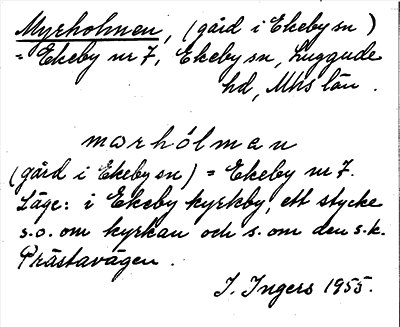 Myrholmen, (gård i Ekeby sn)
= Ekeby nr 7, Ekeby sn, Luggude
hd, Mhs län.
marhólman
(gård i Ekeby sn) = Ekeby nr 7.
Läge: i Ekeby kyrkby, ett stycke
s.o. om kyrkan och s. om den s.k.
Prästavägen.
I. Ingers 1955.